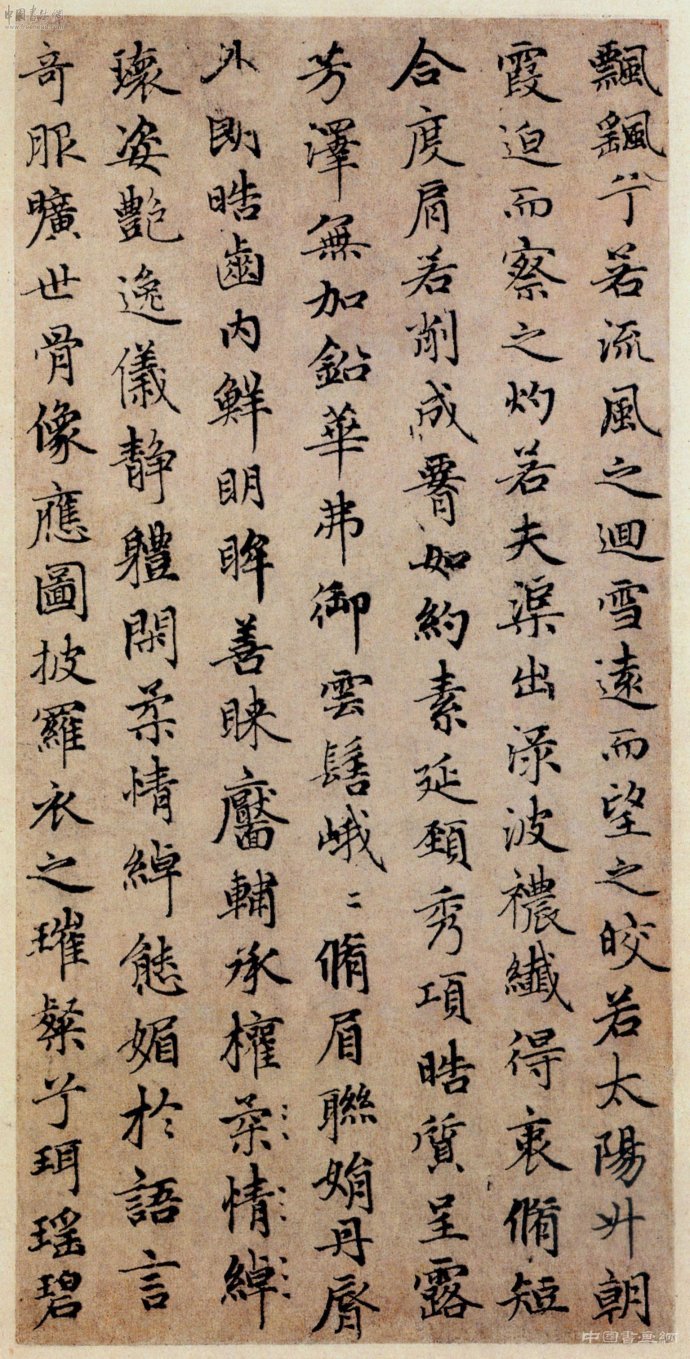 飄飖兮若流風之迴雪遠而望之皎若太陽升朝
霞迫而察之灼若夫渠出淥波襛纖得衷脩短
合度肩若削成腰如約素延頸秀項皓質呈露
芳澤無加鉛華弗御雲髻峨〻脩眉聯娟丹脣
外朗皓齒內鮮明眸善睞靨輔承權柔情綽
瓌姿艷逸儀靜體閑柔情綽態媚於語言
奇服曠世骨像應圖披羅衣之璀粲兮珥瑤碧
中國書畫網